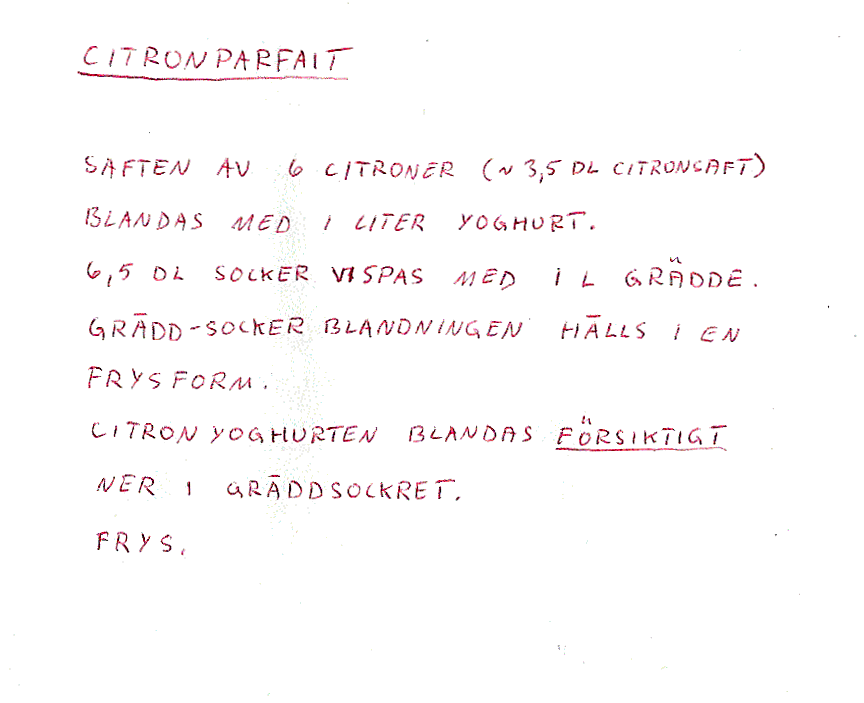 CITRONPARFAIT
SAFTEN AV 6 CITRONER (~ 3,5 DL CITRONSAFT)
BLANDAS MED 1 LITER YOGHURT.
6,5 DL SOCKER VISPAS MED 1 L GRÄDDE.
GRÄDD-SOCKER BLANDNINGEN HÄLLS I EN
FRYSFORM.
CITRONYOGHURTEN BLANDAS FÖRSIKTIGT
NER I GRÄDDSOCKRET.
FRYS.